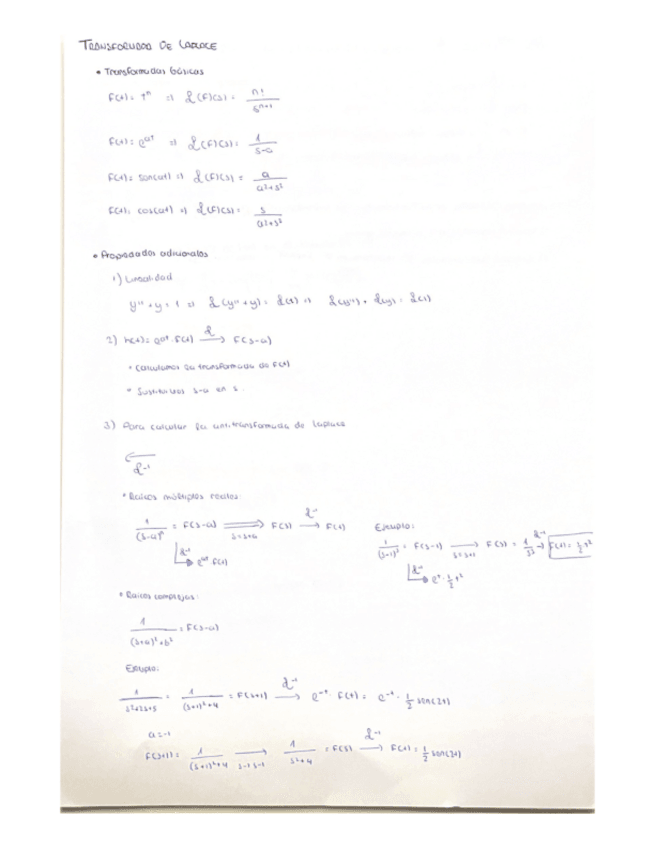 TRANSFORMADA DE LAPLACE
• Transformadas básicas
F(t) = t^n => L(F)(s) = n! / s^(n+1)
F(t) = e^(at) => L(F)(s) = 1 / (s-a)
F(t) = sen(at) => L(F)(s) = a / (a²+s²)
F(t) = cos(at) => L(F)(s) = s / (a²+s²)
• Propiedades adicionales
1) Linealidad
y'' + y = 1 => L(y''+y) = L(1) => L(y'') + L(y) = L(1)
2) h(t) = e^(at) · F(t) —L→ F(s-a)
• Calculamos la transformada de F(t)
• Sustituimos s-a en s.
3) Para calcular la antitransformada de Laplace
← L⁻¹
• Raíces múltiples reales:
1 / (s-a)^n = F(s-a) ⟹ s=s+a F(s) —L⁻¹→ F(t)
L⁻¹ → e^(at) F(t)
Ejemplo:
1 / (s-1)³ = F(s-1) → s=s+1 F(s) = 1/s³ —L⁻¹→ F(t) = 1/2 t²
L⁻¹ → e^t · 1/2 t²
• Raíces complejas:
1 / ((s-a)²+b²) = F(s-a)
Ejemplo:
1 / (s²+2s+5) = 1 / ((s+1)²+4) = F(s+1) —L⁻¹→ e^(-t) · F(t) = e^(-t) · 1/2 sen(2t)
a=-1
F(s+1) = 1 / ((s+1)²+4) → s=s-1 1 / (s²+4) = F(s) —L⁻¹→ F(t) = 1/2 sen(2t)